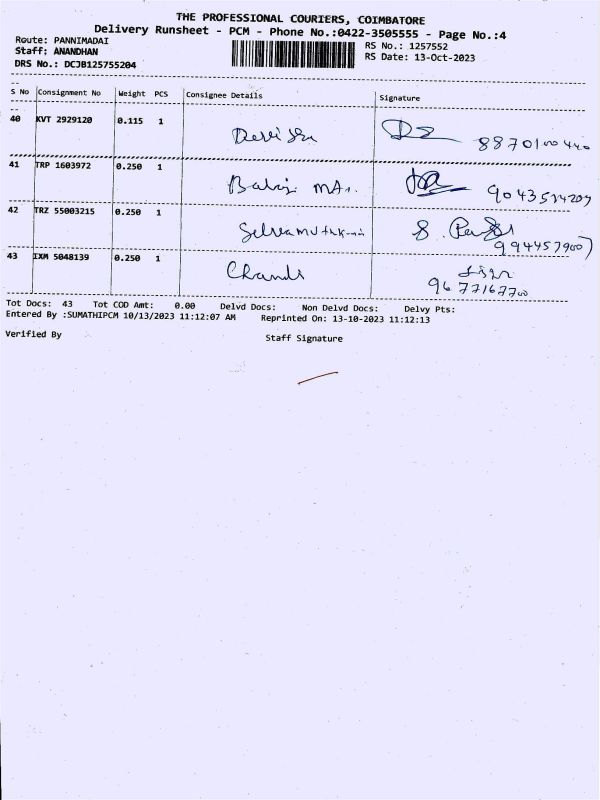 THE PROFESSIONAL COURIERS, COIMBATORE
Delivery Runsheet - PCM - Phone No.:0422-3505555 - Page No.:4
Route: PANNIMADAI
RS No.: 1257552
Staff: ANANDHAN
RS Date: 13-Oct-2023
DRS No.: DCJB125755204
S No Consignment No Weight PCS Consignee Details Signature
40 KVT 2929120 0.115 1
8870100440
41 TRP 1603972 0.250 1 Balaji
42 TRZ 55003215 0.250 1
43 IXM 5048139 0.250 1
9677167700
Tot Docs: 43 Tot COD Amt: 0.00 Delvd Docs: Non Delvd Docs: Delvy Pts:
Entered By :SUMATHIPCM 10/13/2023 11:12:07 AM Reprinted On: 13-10-2023 11:12:13
Verified By
Staff Signature